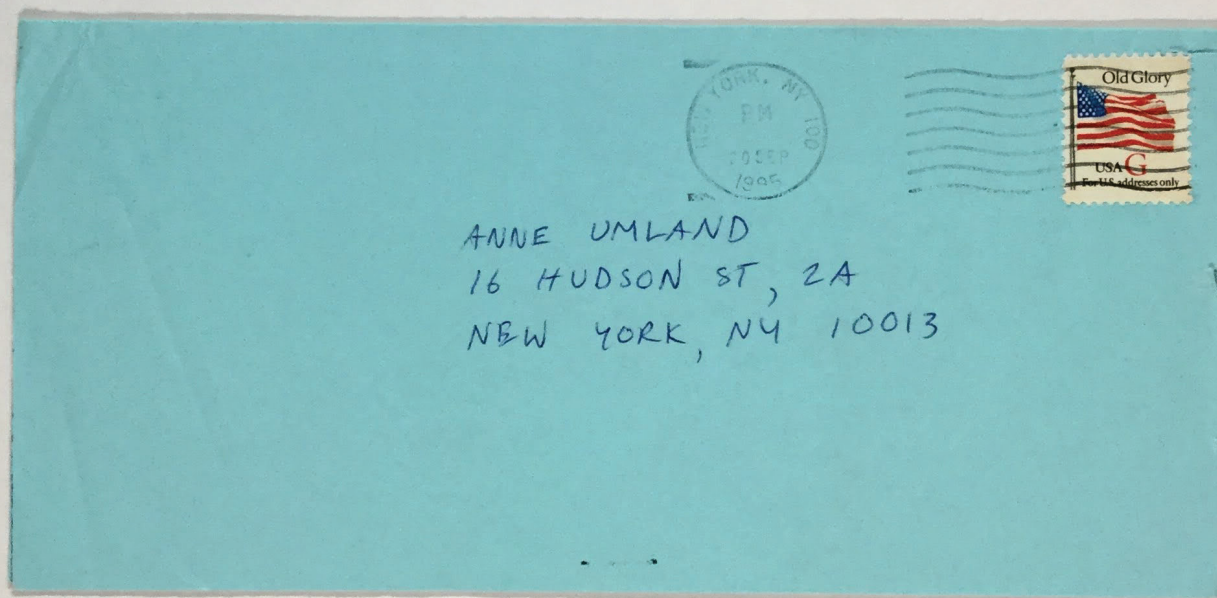 NEW YORK, NY 100
PM
20 SEP
1995
Old Glory
USA G
For U.S. addresses only
ANNE UMLAND
16 HUDSON ST, 2A
NEW YORK, NY 10013